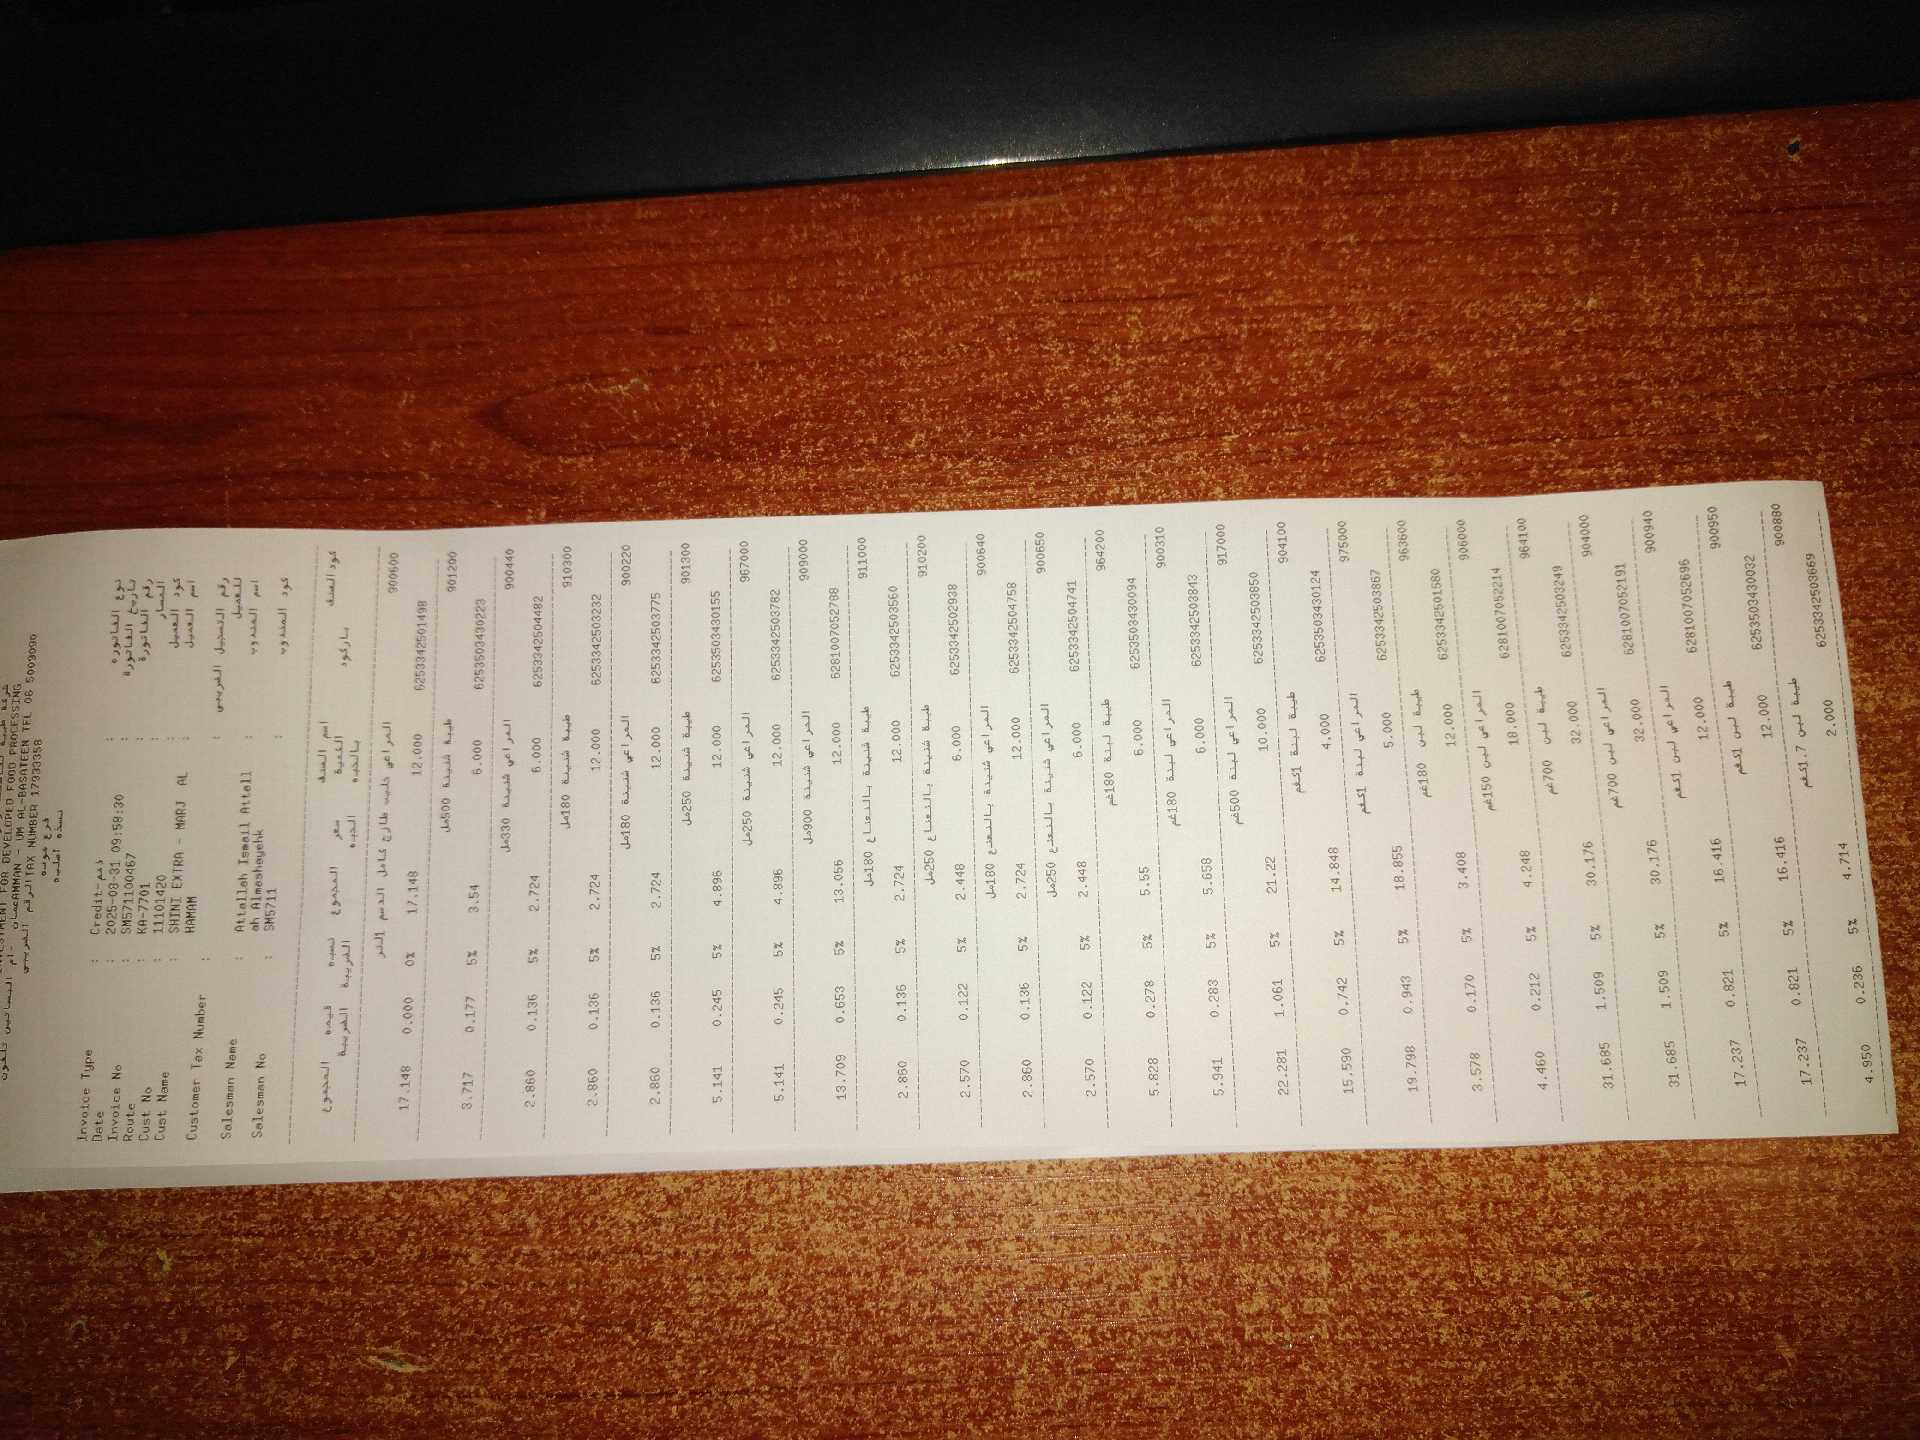 INVESTMENT FOR DEVELOPED FOOD PROCESSING
عمان AMMAN - UM AL-BASATEN TEL 06 5009090
الرقم الضريبي TAX NUMBER 17933358
فرع موبه
نسخه اصليه
Invoice Type : Credit-ذمم : نوع الفاتوره
Date : 2025-08-31 09:58:30 تاريخ الفاتورة
Invoice No : SM571100467 رقم الفاتورة
Route : KA-7701 : المسار
Cust No : 11101420 : كود العميل
Cust Name : SHINI EXTRA - MARJ AL HAMAM : اسم العميل
Customer Tax Number : : رقم التسجيل الضريبي للعميل
Salesman Name : Attallah Ismail Attallah Almashayehk : اسم المندوب
Salesman No : SM5711 : كود المندوب
المجموع قيمه الضريبة نسبه الضريبة المجموع سعر الحبه الكمية بالحبه اسم الصنف باركود كود الصنف
المراعي حليب طازج كامل الدسم 1لتر 900600
17.148 0.000 0% 17.148 12.000 6253342501498
طيبة شنينة 500مل 901200
3.717 0.177 5% 3.54 6.000 6253503430223
المراعي شنينة 330مل 900440
2.860 0.136 5% 2.724 6.000 6253342504482
طيبة شنينة 180مل 910300
2.860 0.136 5% 2.724 12.000 6253342503232
المراعي شنينة 180مل 900220
2.860 0.136 5% 2.724 12.000 6253342503775
طيبة شنينة 250مل 901300
5.141 0.245 5% 4.896 12.000 6253503430155
المراعي شنينة 250مل 967000
5.141 0.245 5% 4.896 12.000 6253342503782
المراعي شنينة 900مل 909000
13.709 0.653 5% 13.056 12.000 6281007052788
طيبة شنينة بالنعناع 180مل 911000
2.860 0.136 5% 2.724 12.000 6253342503560
طيبة شنينة بالنعناع 250مل 910200
2.570 0.122 5% 2.448 6.000 6253342502938
المراعي شنينة بالنعنع 180مل 900640
2.860 0.136 5% 2.724 12.000 6253342504758
المراعي شنينة بالنعنع 250مل 900650
2.570 0.122 5% 2.448 6.000 6253342504741
طيبة لبنة 180غم 964200
5.828 0.278 5% 5.55 6.000 6253503430094
المراعي لبنة 180غم 900310
5.941 0.283 5% 5.658 6.000 6253342503843
المراعي لبنة 500غم 917000
22.281 1.061 5% 21.22 10.000 6253342503850
طيبة لبنة 1كغم 904100
15.590 0.742 5% 14.848 4.000 6253503430124
المراعي لبنة 1كغم 975000
19.798 0.943 5% 18.855 5.000 6253342503867
طيبة لبن 180غم 963600
3.578 0.170 5% 3.408 12.000 6253342501580
المراعي لبن 150غم 906000
4.460 0.212 5% 4.248 18.000 6281007052214
طيبة لبن 700غم 964100
31.685 1.509 5% 30.176 32.000 6253342503249
المراعي لبن 700غم 904000
31.685 1.509 5% 30.176 32.000 6281007052191
المراعي لبن 1كغم 900940
17.237 0.821 5% 16.416 12.000 6281007052696
طيبة لبن 1كغم 900950
17.237 0.821 5% 16.416 12.000 6253503430032
طيبة لبن 1.7كغم 900880
4.950 0.236 5% 4.714 2.000 6253342503669